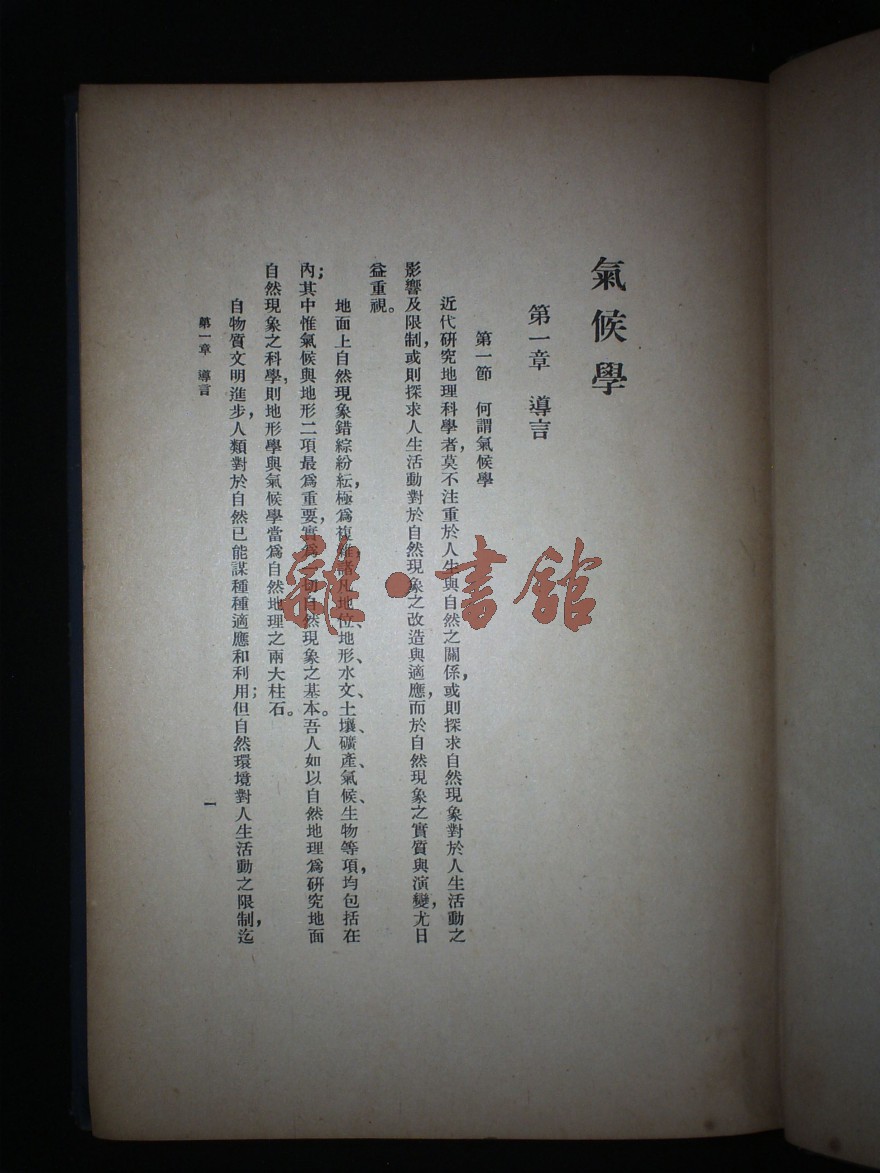 氣候學
第一章　導言
第一節　何謂氣候學
近代研究地理科學者，莫不注重於人生與自然之關係，或則探求自然現象對於人生活動之
影響及限制，或則探求人生活動對於自然現象之改造與適應，而於自然現象之實質與演變，尤日
益重視。
地面上自然現象錯綜紛紜，極爲複雜，諸凡地位、地形、水文、土壤、礦產、氣候、生物等項，均包括在
內；其中惟氣候與地形二項最爲重要，實爲一切自然現象之基本。吾人如以自然地理爲研究地面
自然現象之科學，則地形學與氣候學當爲自然地理之兩大柱石。
自物質文明進步，人類對於自然已能謀種種適應和利用；但自然環境對人生活動之限制，迄
第一章　導言
一
雜·書館